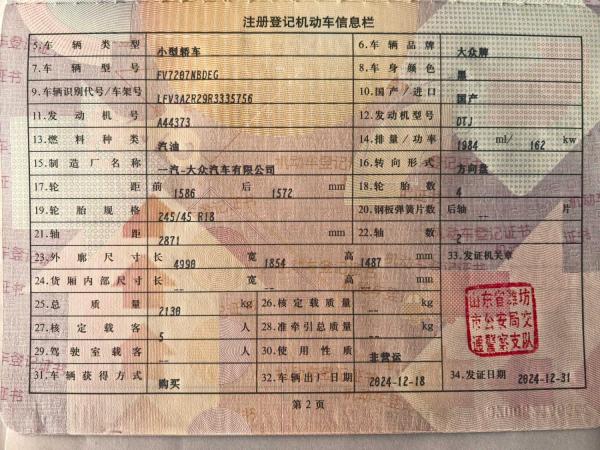 注册登记机动车信息栏
5.车辆类型 小型轿车 6.车辆品牌 大众牌
7.车辆型号 FV7207NBDEG 8.车身颜色 黑
9.车辆识别代号/车架号 LFV3A2R29R3335756 10.国产/进口 国产
11.发动机号 A44373 12.发动机型号 DTJ
13.燃料种类 汽油 14.排量/功率 1984 ml/ 162 kw
15.制造厂名称 一汽-大众汽车有限公司 16.转向形式 方向盘
17.轮距 前 1586 后 1572 mm 18.轮胎数 4
19.轮胎规格 245/45 R18 20.钢板弹簧片数 后轴 -- 片
21.轴距 2871 mm 22.轴数 2
23.外廓尺寸 长 4990 宽 1854 高 1487 mm 33.发证机关章
24.货厢内部尺寸 长 -- 宽 -- 高 -- mm
25.总质量 2130 kg 26.核定载质量 -- kg
27.核定载客 5 人 28.准牵引总质量 -- kg
山东省潍坊
市公安局交
通警察支队
29.驾驶室载客 -- 人 30.使用性质 非营运
31.车辆获得方式 购买 32.车辆出厂日期 2024-12-18 34.发证日期 2024-12-31
第2页